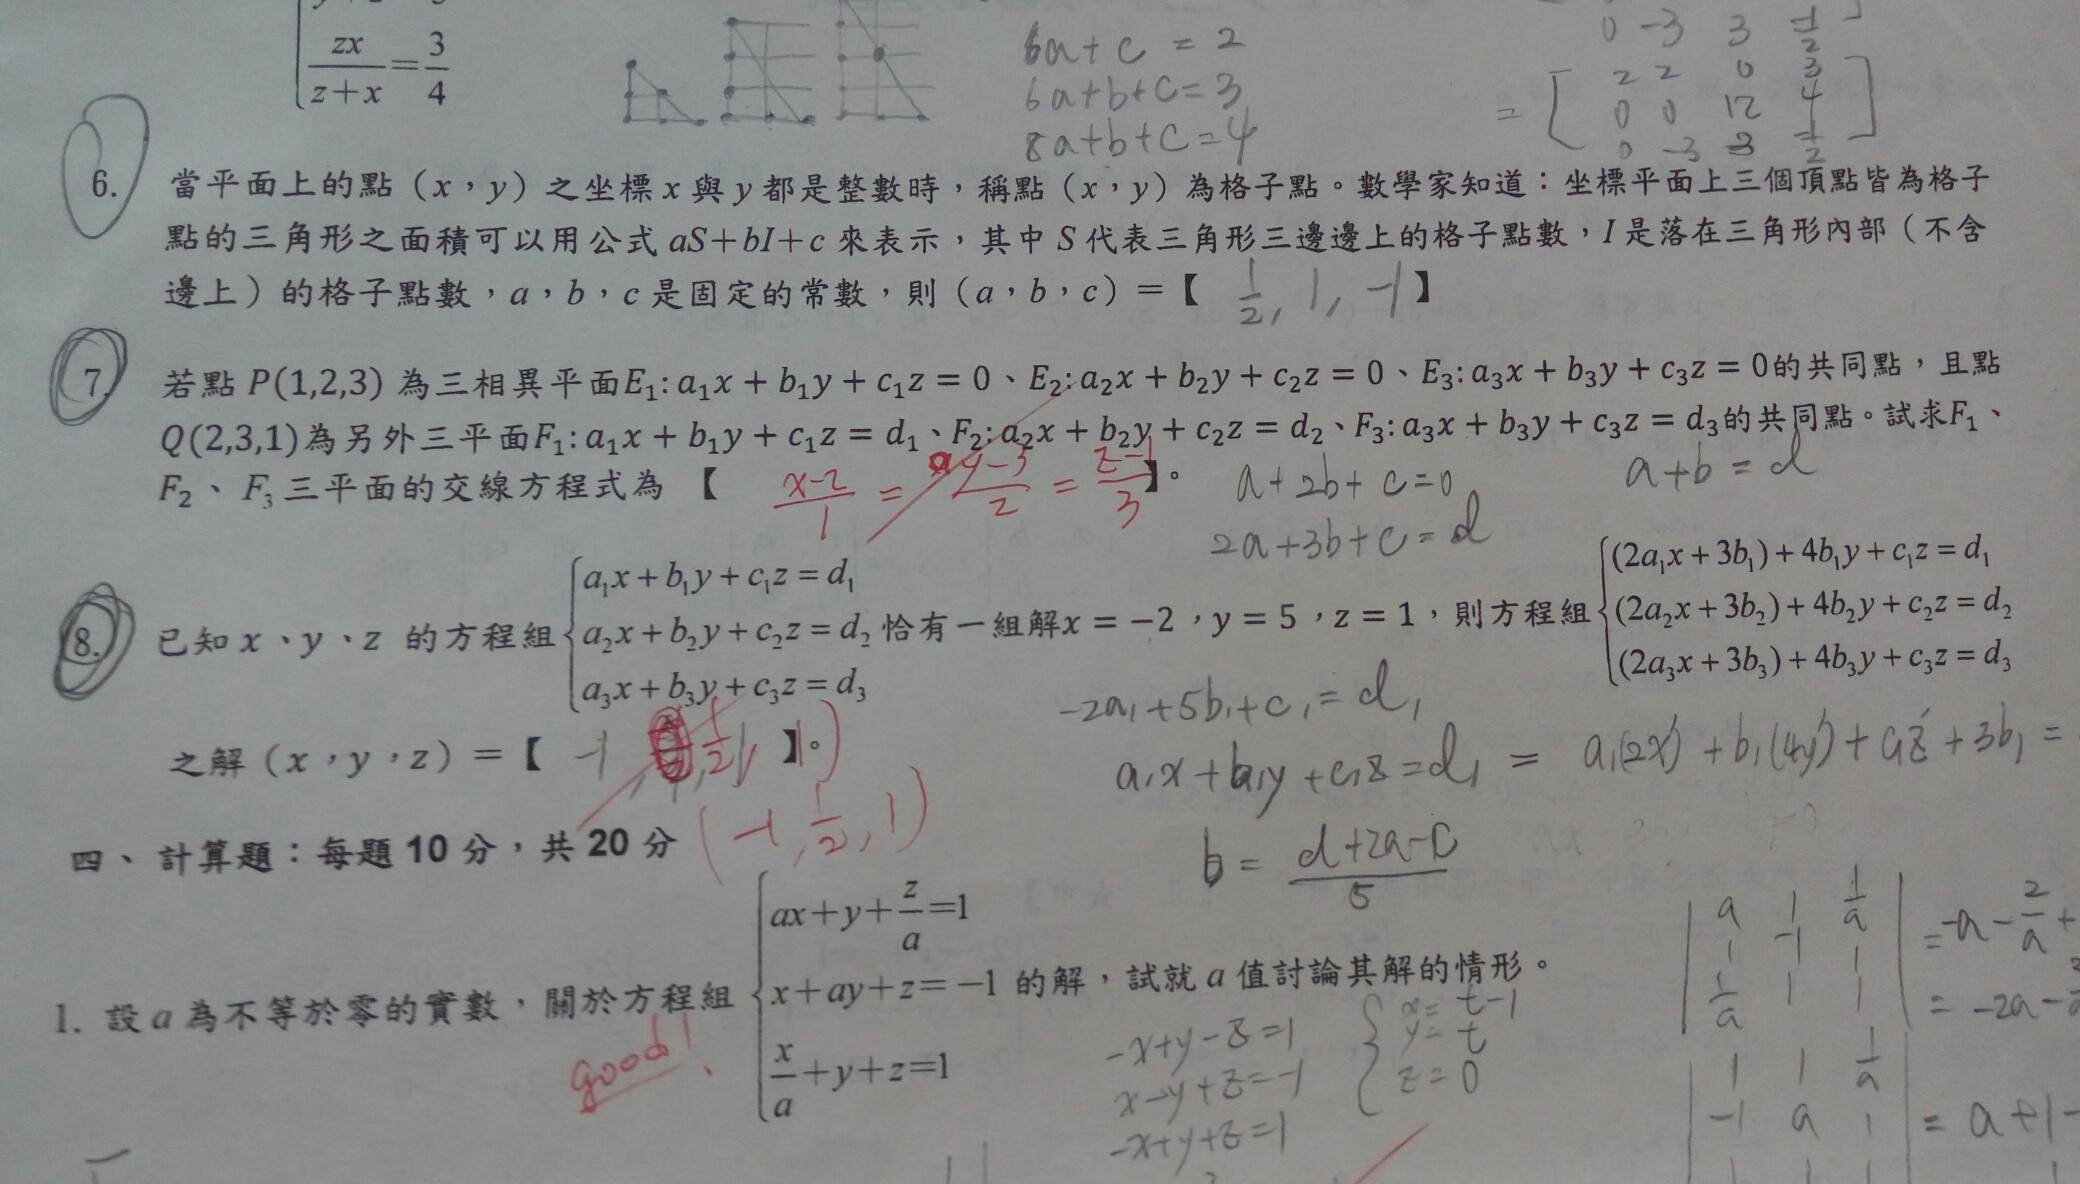 zx/(z+x) = 3/4
6a+c = 2
6a+b+c=3
8a+b+c=4
0 -3 3 1/2
2 2 0 3
= 0 0 12 4
0 -3 3 1/2
6. 當平面上的點（x，y）之坐標x與y都是整數時，稱點（x，y）為格子點。數學家知道：坐標平面上三個頂點皆為格子
點的三角形之面積可以用公式 aS+bI+c 來表示，其中 S 代表三角形三邊邊上的格子點數，I 是落在三角形內部（不含
邊上）的格子點數，a，b，c 是固定的常數，則（a，b，c）＝【 1/2, 1, -1 】
7. 若點 P(1,2,3) 為三相異平面E₁: a₁x + b₁y + c₁z = 0、E₂: a₂x + b₂y + c₂z = 0、E₃: a₃x + b₃y + c₃z = 0的共同點，且點
Q(2,3,1)為另外三平面F₁: a₁x + b₁y + c₁z = d₁、F₂: a₂x + b₂y + c₂z = d₂、F₃: a₃x + b₃y + c₃z = d₃的共同點。試求F₁、
F₂、F₃三平面的交線方程式為 【 (x-2)/1 = (y-3)/2 = (z-1)/3 】。
a+2b+c=0
a+b=d
2a+3b+c=d
8. 已知 x、y、z 的方程組
a₁x+b₁y+c₁z=d₁
a₂x+b₂y+c₂z=d₂
a₃x+b₃y+c₃z=d₃
恰有一組解x = −2，y = 5，z = 1，則方程組
(2a₁x+3b₁)+4b₁y+c₁z=d₁
(2a₂x+3b₂)+4b₂y+c₂z=d₂
(2a₃x+3b₃)+4b₃y+c₃z=d₃
之解（x，y，z）＝【 -1, 1/2, 1 】。
-2a₁+5b₁+c₁=d₁
a₁x+b₁y+c₁z=d₁ = a₁(2x')+b₁(4y')+c₁z'+3b₁=
(-1, 1/2, 1)
b = (d+2a-c)/5
四、計算題：每題 10 分，共 20 分
1. 設a為不等於零的實數，關於方程組
ax+y+z/a=1
x+ay+z=−1
x/a+y+z=1
的解，試就 a 值討論其解的情形。
good!
-x+y-z=1
x-y+z=-1
-x+y+z=1
x=t-1
y=t
z=0
a 1 1/a
1 -1 1
1/a 1 1
=-a-2/a+
=-2a-
1 1 1/a
-1 a 1
=a+1-